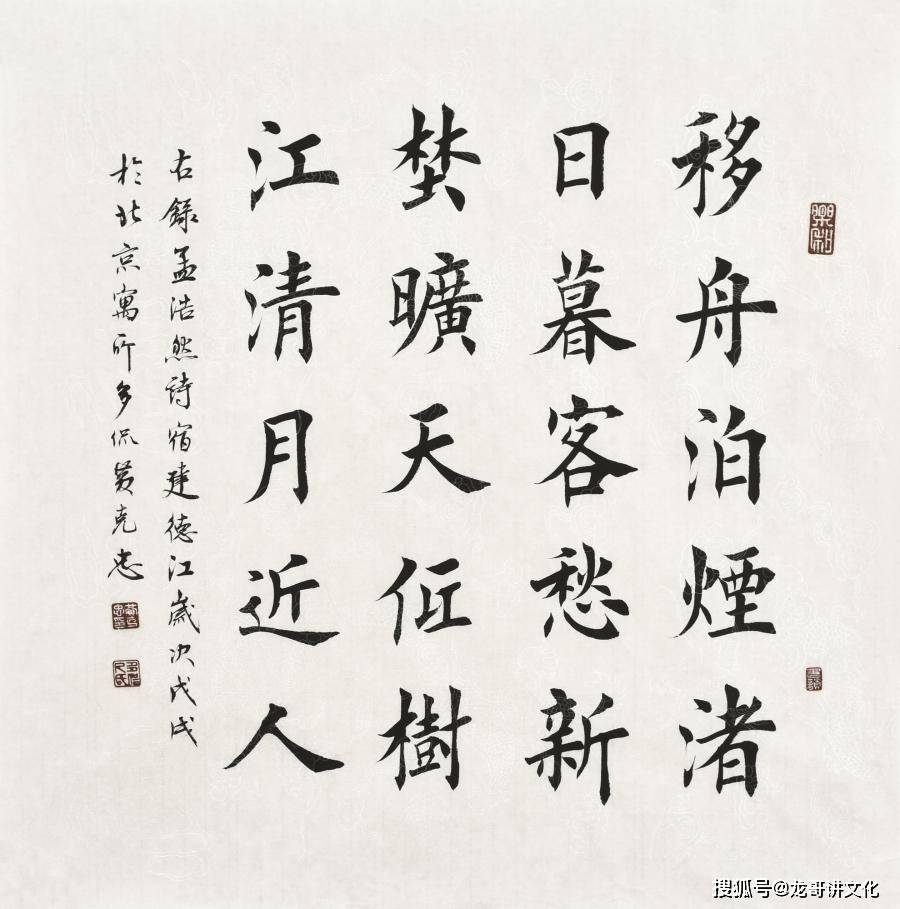 移舟泊煙渚
日暮客愁新
埜曠天仾樹
江清月近人
右錄孟浩然詩宿建德江歲次戊戌
於北京寓所多侃黃克忠
搜狐号@龙哥讲文化